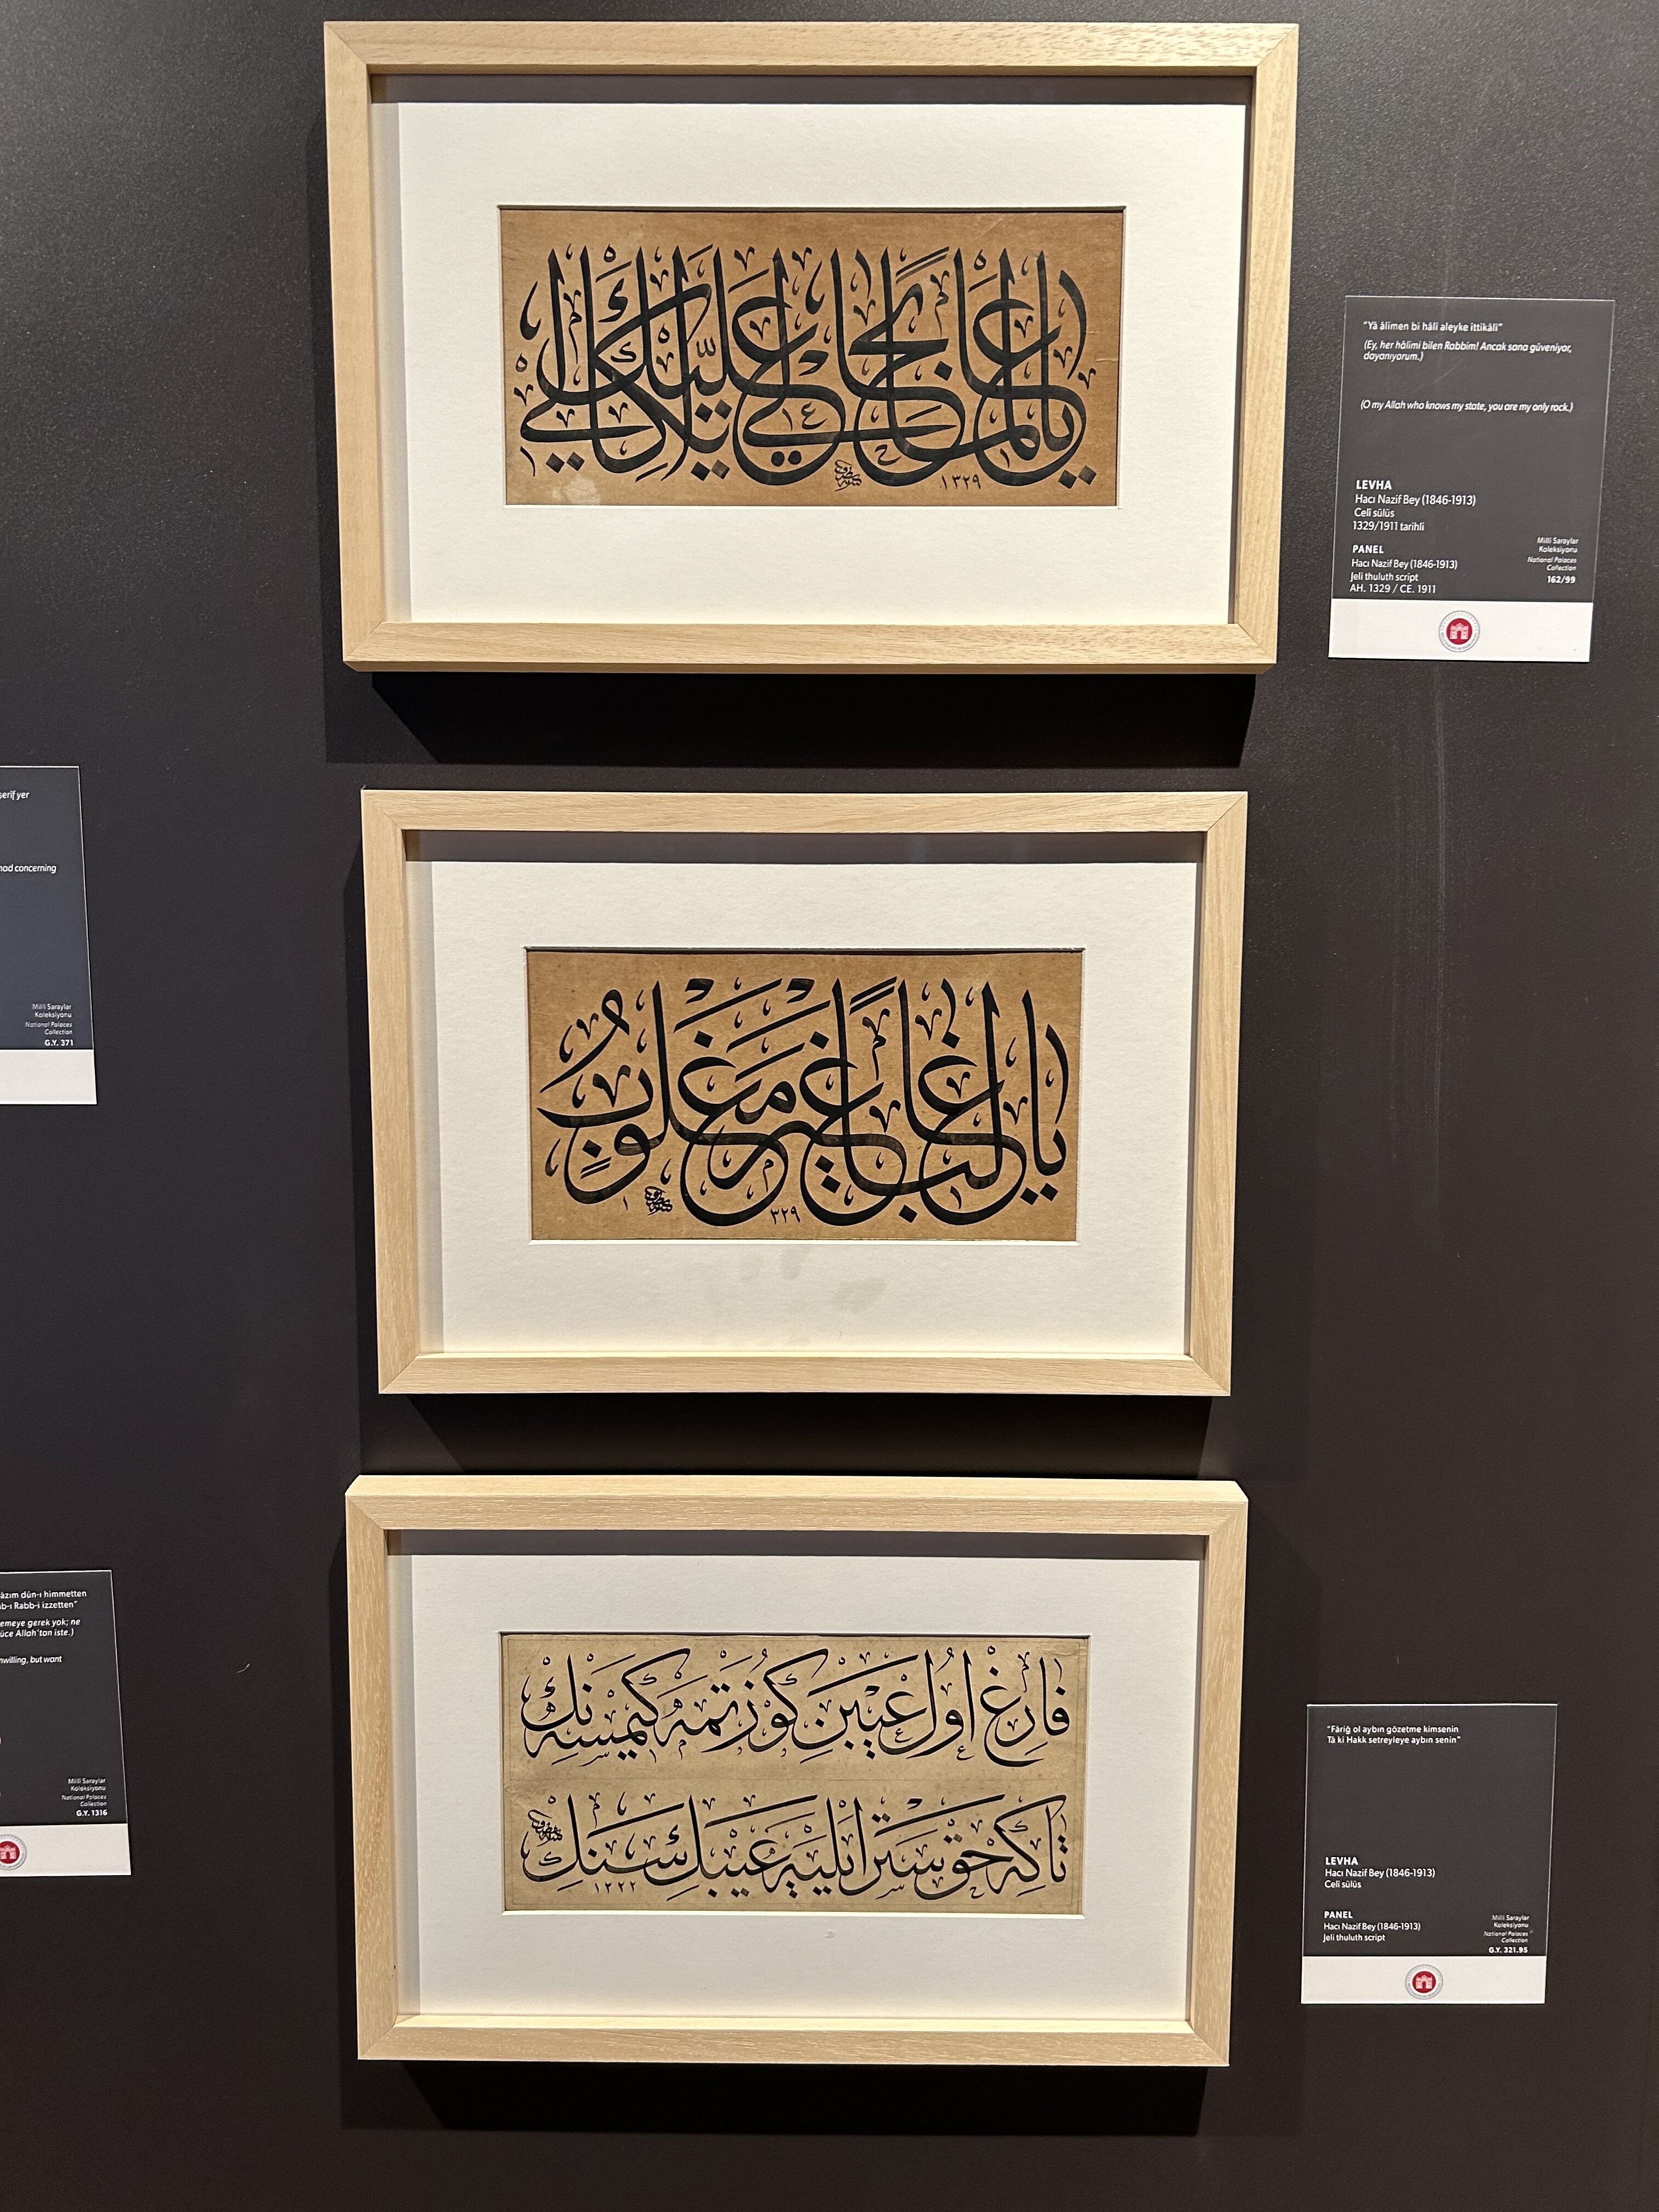 يا عالما بحالي عليك اتكالي
١٣٢٩
"Yâ âlimen bi hâli aleyke ittikâli"
(Ey, her hâlimi bilen Rabbim! Ancak sana güveniyor,
dayanıyorum.)
(O my Allah who knows my state, you are my only rock.)
LEVHA
Hacı Nazif Bey (1846-1913)
Celî sülüs
1329/1911 tarihli
PANEL
Hacı Nazif Bey (1846-1913)
Jeli thuluth script
AH. 1329 / CE. 1911
Milli Saraylar
Koleksiyonu
National Palaces
Collection
162/99
şerif yer
concerning
Milli Saraylar
Koleksiyonu
National Palaces
Collection
G.Y. 371
يا غالبا غير مغلوب
٣٢٩
dûn-ı himmetten
Rabb-i izzetten"
gerek yok; ne
Allah'tan iste.)
but want
Milli Saraylar
Koleksiyonu
National Palaces
Collection
G.Y. 1316
فارغ اول عيبن كوزتمه كيمسه نك
تا كه حق ستر ايليه عيبك سنك
١٣٢٢
"Fâriğ ol aybın gözetme kimsenin
Tâ ki Hakk setreyleye aybın senin"
LEVHA
Hacı Nazif Bey (1846-1913)
Celî sülüs
PANEL
Hacı Nazif Bey (1846-1913)
Jeli thuluth script
Milli Saraylar
Koleksiyonu
National Palaces
Collection
G.Y. 321.95